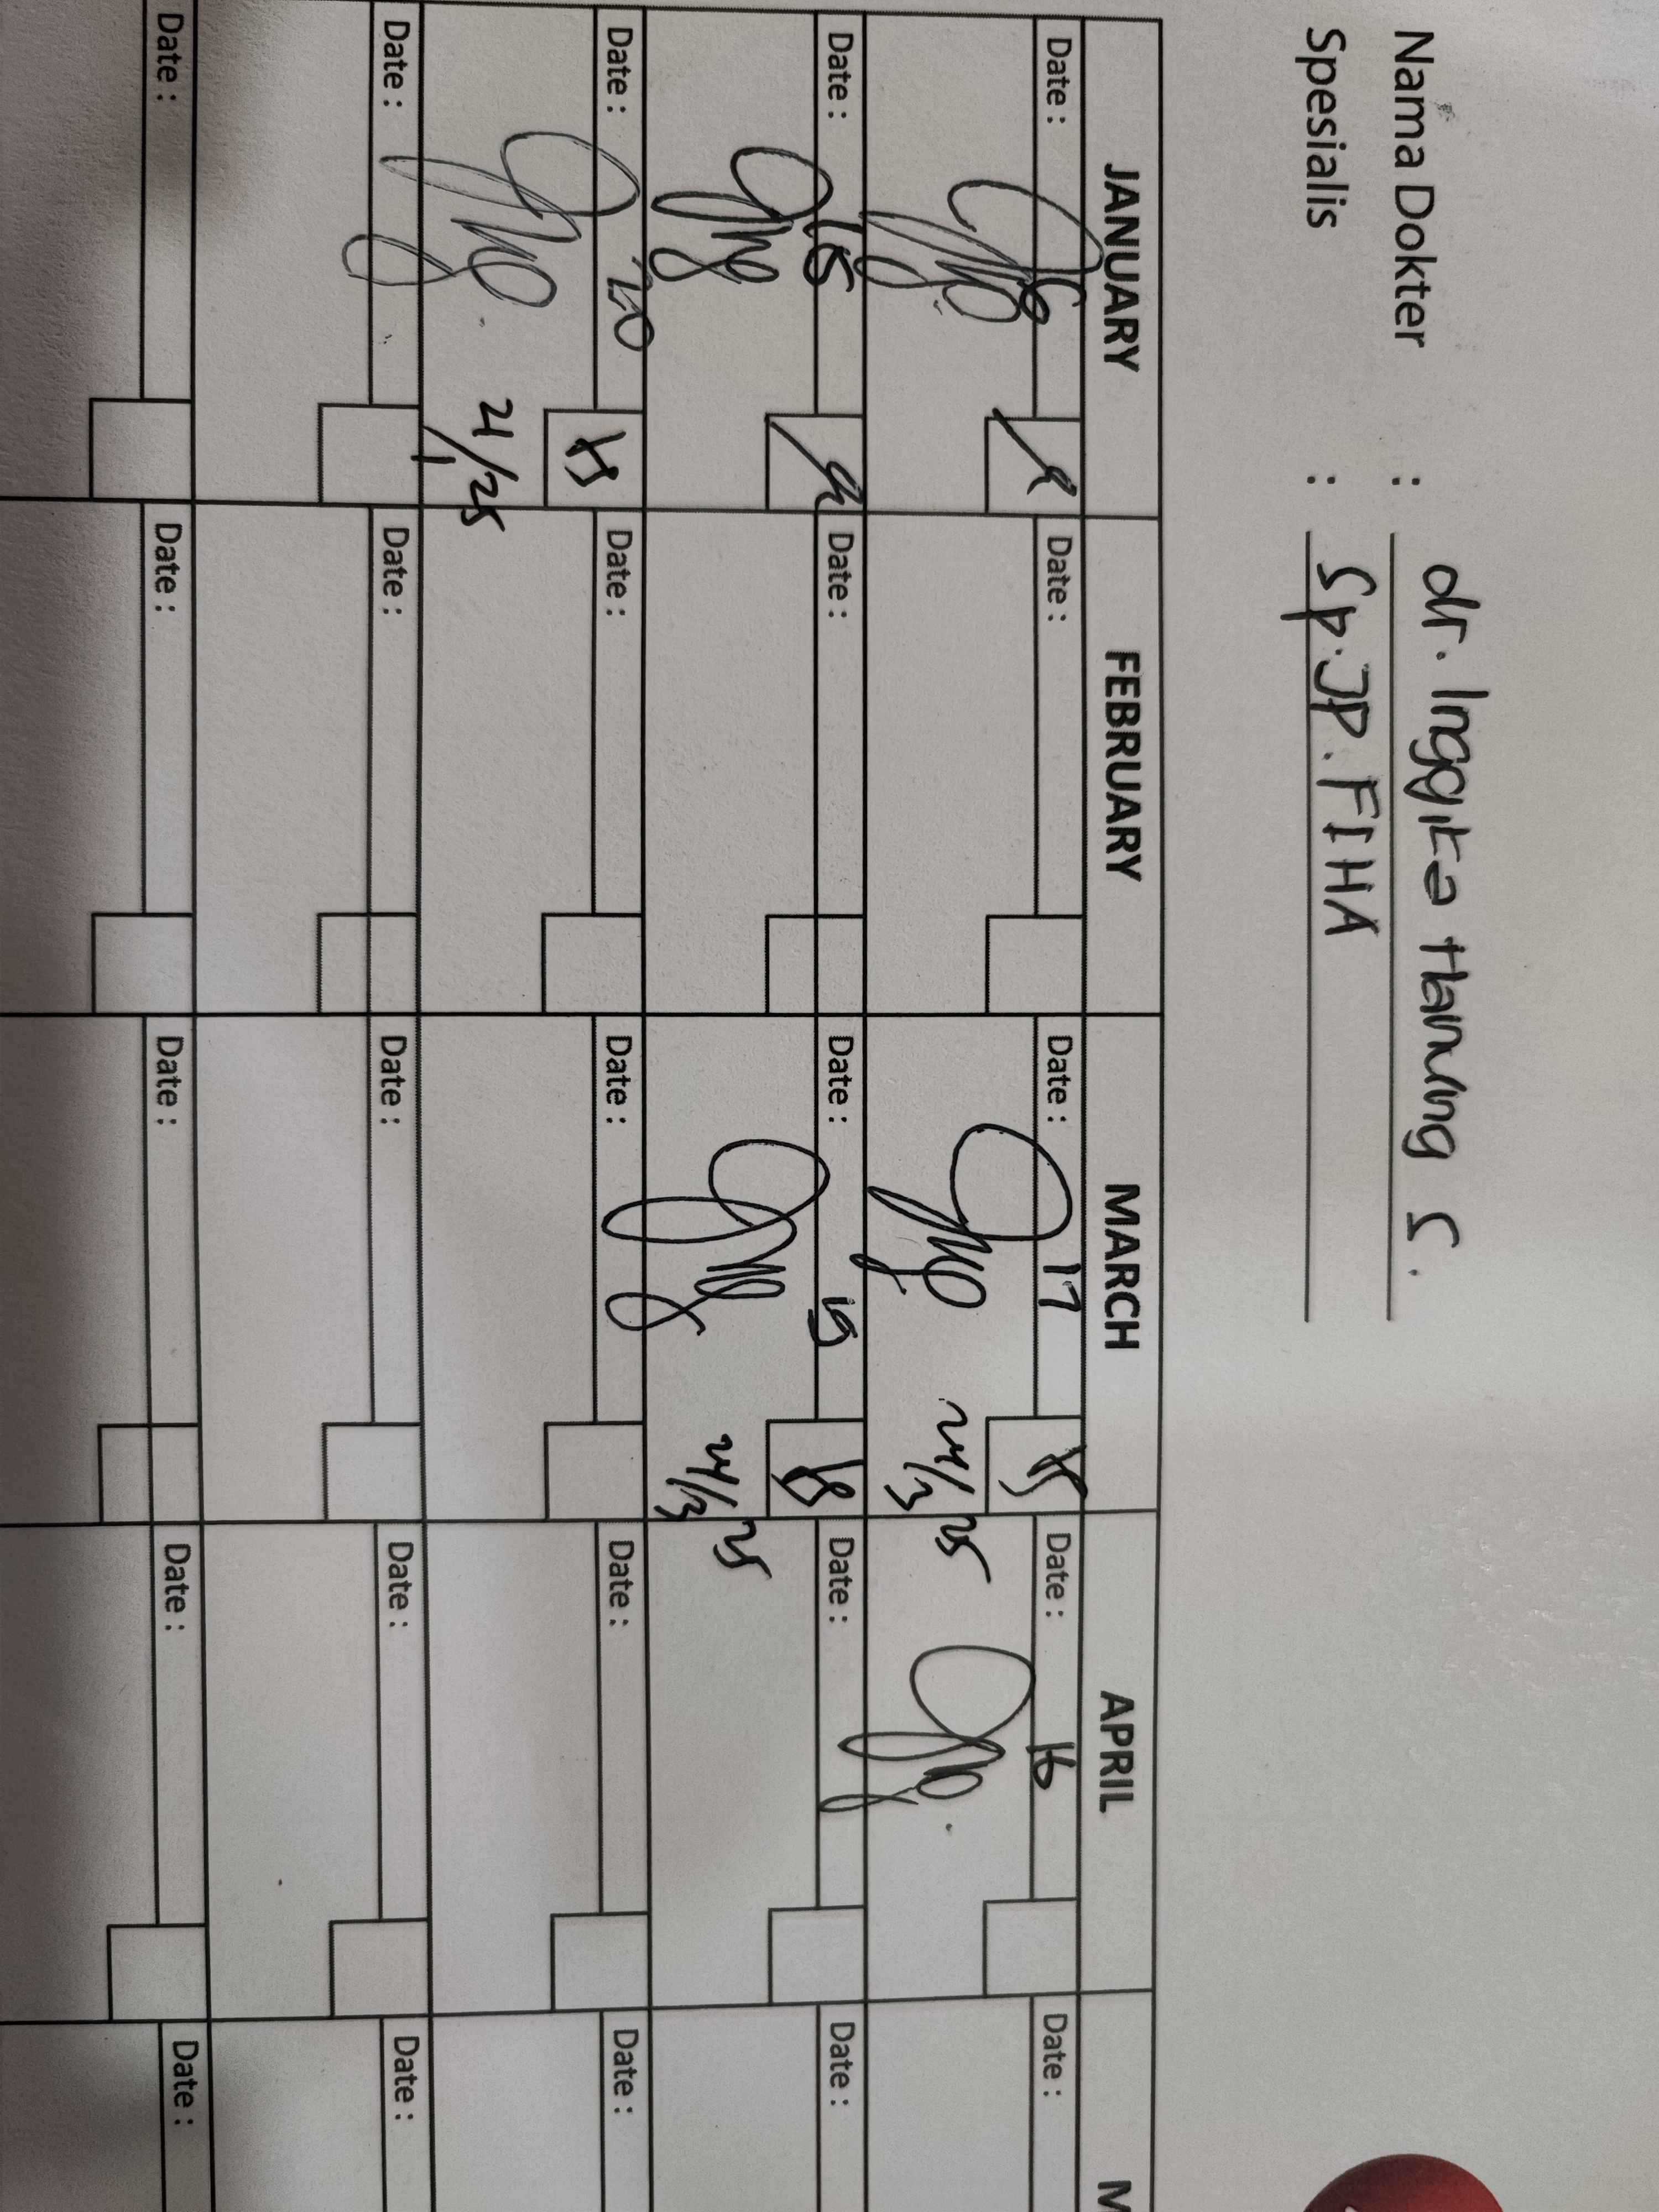 Nama Dokter : dr. Inggita Hanung S.
Spesialis : Sp.JP.FIHA
JANUARY FEBRUARY MARCH APRIL M
Date : 6 Date : Date : 17 Date : 16 Date :
24/3 25
Date : 15 Date : Date : 19 Date : Date :
24/3 25
Date : 20 Date : Date : Date : Date :
21/1 25
Date : Date : Date : Date : Date :
Date : Date : Date : Date : Date :